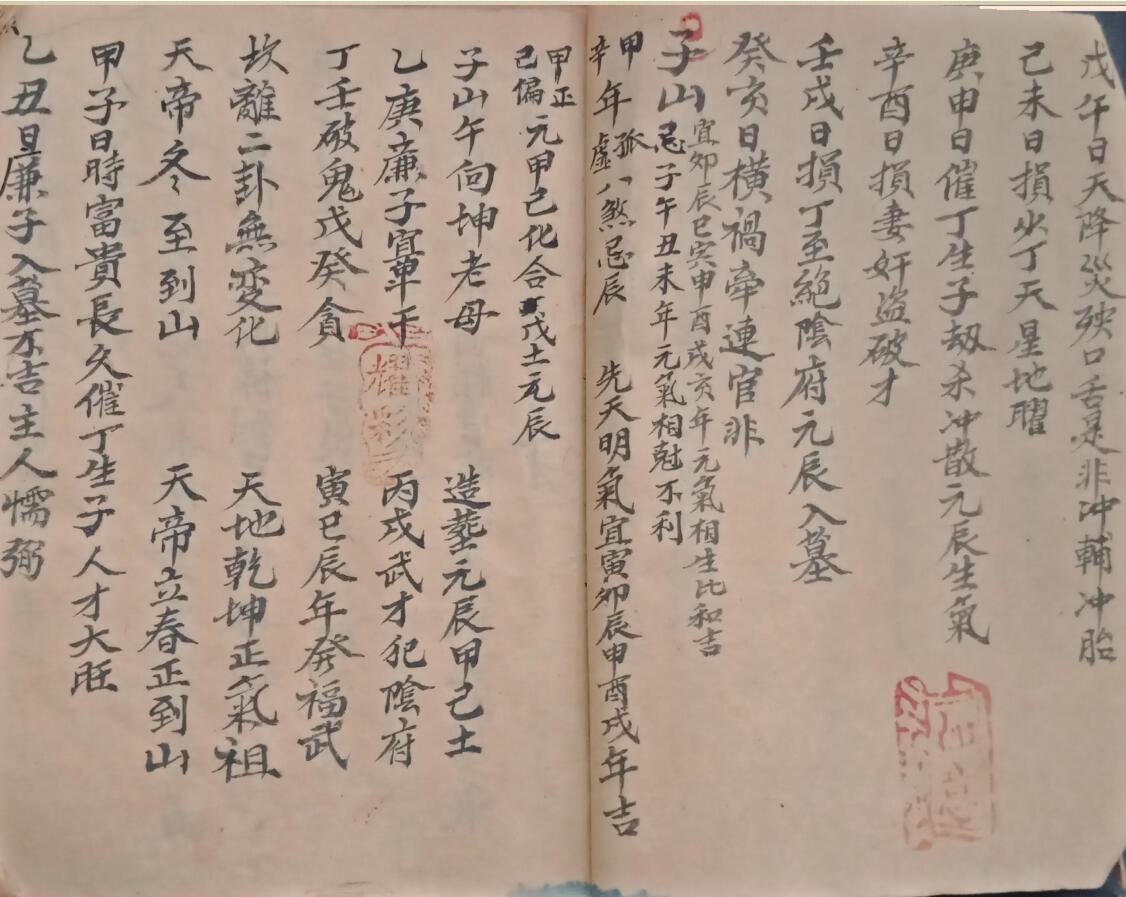 戊午日天降災殃口舌是非冲輔冲胎
己未日損少丁天星地曜
庚申日催丁生子刼杀冲散元辰生氣
辛酉日損妻奸盗破才
壬戌日損丁至絕陰府元辰入墓
癸亥日橫禍牽連官非
子山
宜卯辰巳寅申酉戌亥年元氣相生比和吉
忌子午丑未年元氣相尅不利
甲辛年孤虛八煞忌辰 先天明氣宜寅卯辰申酉戌年吉
甲正己偏元甲己化合戊土元辰
子山午向坤老母 造塟元辰甲己土
乙庚亷子宜單干 丙戌武才犯陰府
丁壬破鬼戊癸貪 寅巳辰年發福武
坎離二卦無変化 天地乾坤正氣祖
天帝冬至到山 天帝立春正到山
甲子日時富貴長久催丁生子人才大旺
乙丑日亷子入墓不吉主人懦弱
耀